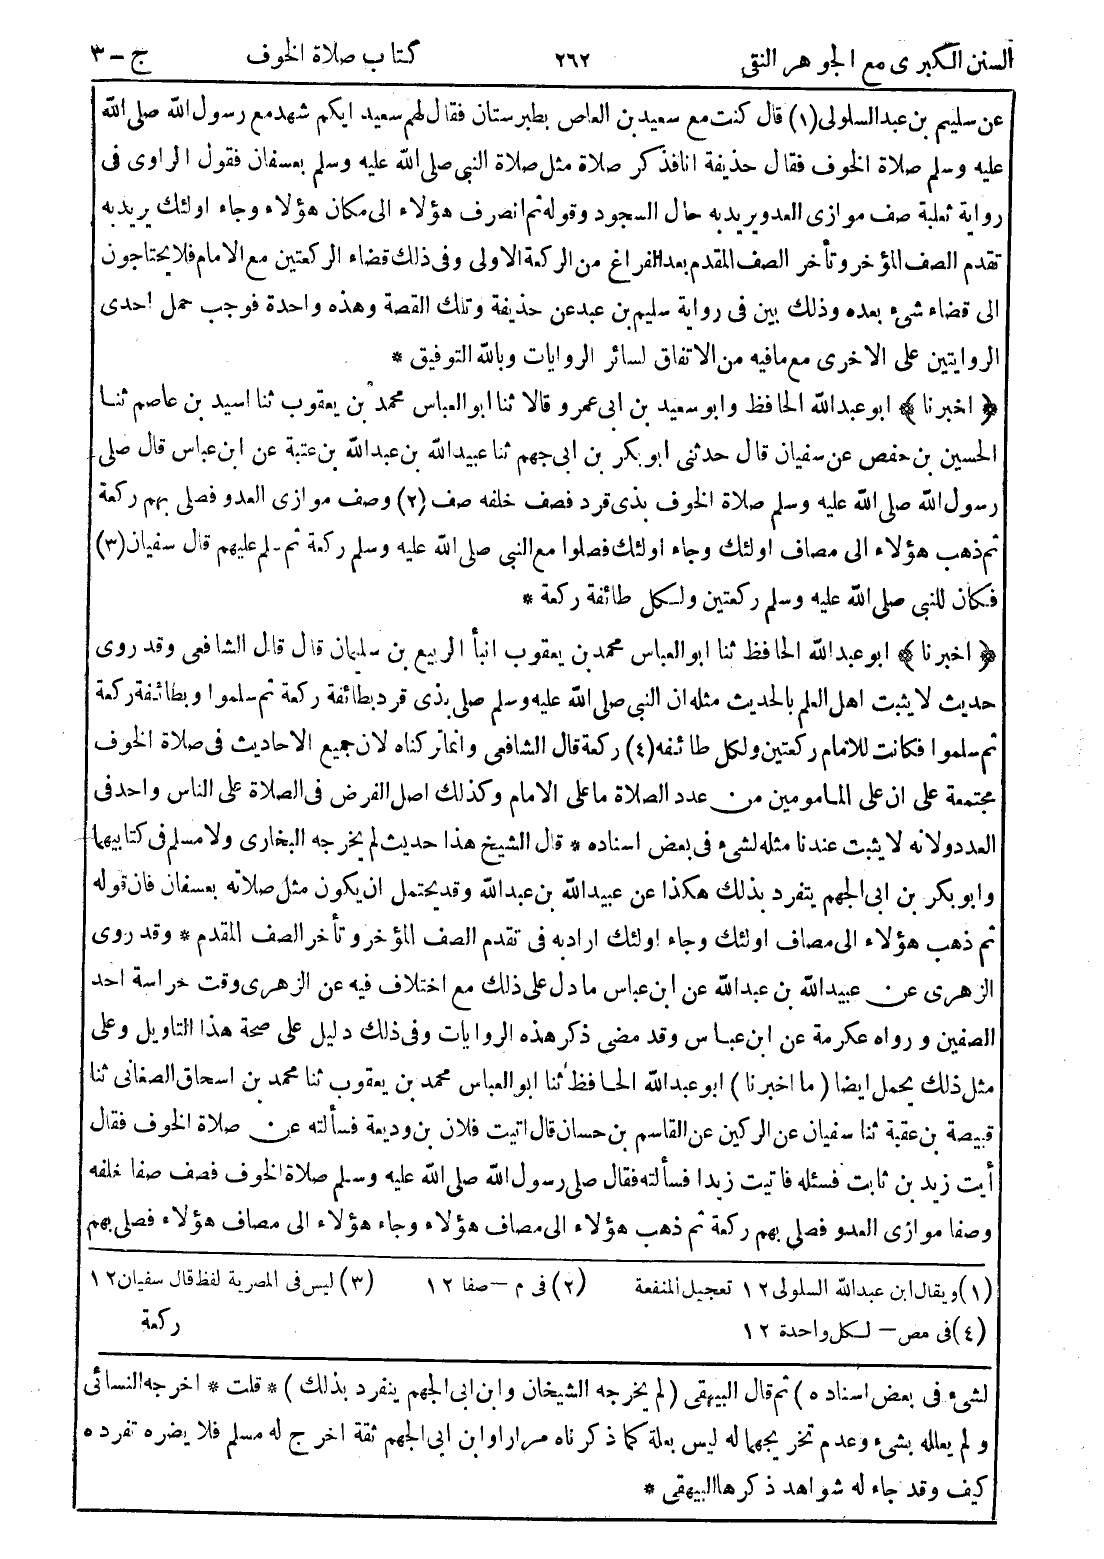 السنن الكبرى مع الجوهر النقى ٢٦٢ كتاب صلاة الخوف ج – ٣
عن سليم بن عبد السلولى (١) قال كنت مع سعيد بن العاص بطبرستان فقال لهم سعيد ايكم شهد مع رسول الله صلى الله
عليه وسلم صلاة الخوف فقال حذيفة انا فذكر صلاة مثل صلاة النبى صلى الله عليه وسلم بعسفان فقول الراوى فى
رواية ثعلبة صف موازى العدو يريد به حال السجود وقوله ثم انصرف هؤلاء الى مكان هؤلاء وجاء اولئك يريد به
تقدم الصف المؤخر وتأخر الصف المقدم بعد الفراغ من الركعة الاولى وفى ذلك قضاء الركعتين مع الامام فلا يحتاجون
الى قضاء شىء بعده وذلك بين فى رواية سليم بن عبد عن حذيفة وتلك القصة وهذه واحدة فوجب حمل احدى
الروايتين على الاخرى مع مافيه من الاتفاق لسائر الروايات وبالله التوفيق *
﴿ اخبرنا ﴾ ابو عبد الله الحافظ وابو سعيد بن ابى عمرو قالا ثنا ابو العباس محمد بن يعقوب ثنا اسيد بن عاصم ثنا
الحسين بن حفص عن سفيان قال حدثنى ابو بكر بن ابى جهم ثنا عبيد الله بن عبد الله بن عتبة عن ابن عباس قال صلى
رسول الله صلى الله عليه وسلم صلاة الخوف بذى قرد فصف خلفه صف (٢) وصف موازى العدو فصلى بهم ركعة
ثم ذهب هؤلاء الى مصاف اولئك وجاء اولئك فصلوا مع النبى صلى الله عليه وسلم ركعة ثم سلم عليهم قال سفيان (٣)
فكان للنبى صلى الله عليه وسلم ركعتين ولكل طائفة ركعة *
﴿ اخبرنا ﴾ ابو عبد الله الحافظ ثنا ابو العباس محمد بن يعقوب انبأ الربيع بن سليمان قال قال الشافعى وقد روى
حديث لا يثبت اهل العلم بالحديث مثله ان النبى صلى الله عليه وسلم صلى بذى قرد بطائفة ركعة ثم سلموا وبطائفة ركعة
ثم سلموا فكانت للامام ركعتين ولكل طائفه (٤) ركعة قال الشافعى وانما تركناه لان جميع الاحاديث فى صلاة الخوف
مجتمعة على ان على المامومين من عدد الصلاة ما على الامام وكذلك اصل الفرض فى الصلاة على الناس واحد فى
العدد ولانه لا يثبت عندنا مثله لشىء فى بعض اسناده * قال الشيخ هذا حديث لم يخرجه البخارى ولا مسلم فى كتابيهما
وابو بكر بن ابى الجهم يتفرد بذلك هكذا عن عبيد الله بن عبد الله وقد يحتمل ان يكون مثل صلاته بعسفان فان قوله
ثم ذهب هؤلاء الى مصاف اولئك وجاء اولئك اراد به فى تقدم الصف المؤخر وتأخر الصف المقدم * وقد روى
الزهرى عن عبيد الله بن عبد الله عن ابن عباس ما دل على ذلك مع اختلاف فيه عن الزهرى وقت حراسة احد
الصفين ورواه عكرمة عن ابن عباس وقد مضى ذكر هذه الروايات وفى ذلك دليل على صحة هذا التاويل وعلى
مثل ذلك يحمل ايضا ( ما اخبرنا ) ابو عبد الله الحافظ ثنا ابو العباس محمد بن يعقوب ثنا محمد بن اسحاق الصغانى ثنا
قبيصة بن عقبة ثنا سفيان عن الركين عن القاسم بن حسان قال اتيت فلان بن وديعة فسألته عن صلاة الخوف فقال
أيت زيد بن ثابت فسئله فاتيت زيدا فسألته فقال صلى رسول الله صلى الله عليه وسلم صلاة الخوف فصف صفا خلفه
وصفا موازى العدو فصلى بهم ركعة ثم ذهب هؤلاء الى مصاف هؤلاء وجاء هؤلاء الى مصاف هؤلاء فصلى بهم
(١) ويقال ابن عبد الله السلولى ١٢ تعجيل المنفعة (٢) فى م – صفا ١٢ (٣) ليس فى المصرية لفظ قال سفيان ١٢
(٤) فى مص – لكل واحدة ١٢ ركعة
لشىء فى بعض اسناده ) ثم قال البيهقى ( لم يخرجه الشيخان وابن ابى الجهم ينفرد بذلك ) * قلت * اخرجه النسائى
ولم يعلله بشىء وعدم تخريجهما له ليس بعلة كما ذكرناه مرارا وابن ابى الجهم ثقة اخرج له مسلم فلا يضره تفرده
كيف وقد جاء له شواهد ذكرها البيهقى *